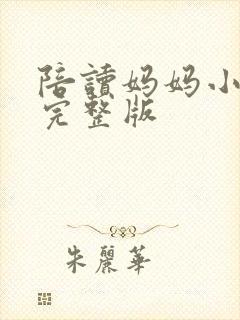 陪讀妈妈小
完整版
朱麗華